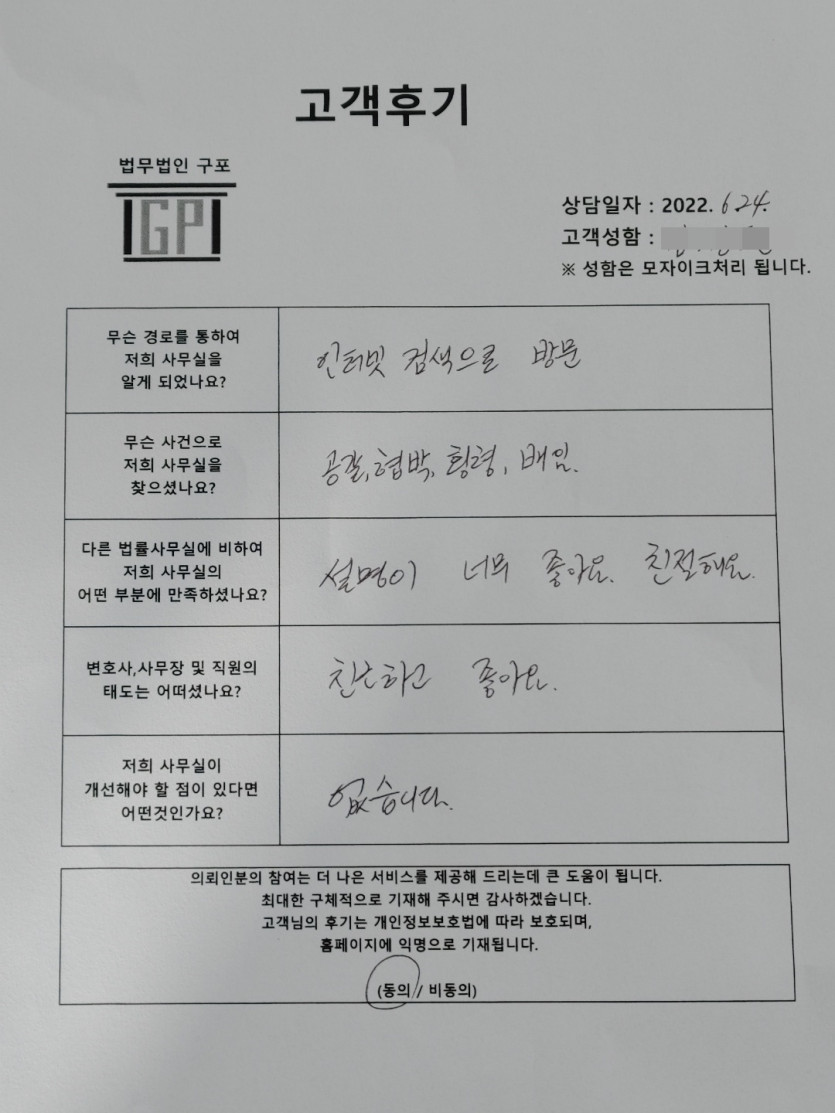 고객후기
법무법인 구포
GP
상담일자 : 2022. 6. 24.
고객성함 :
※ 성함은 모자이크처리 됩니다.
무슨 경로를 통하여
저희 사무실을
알게 되었나요?
인터넷 검색으로 방문
무슨 사건으로
저희 사무실을
찾으셨나요?
공갈, 협박, 횡령, 배임.
다른 법률사무실에 비하여
저희 사무실의
어떤 부분에 만족하셨나요?
설명이 너무 좋아요. 친절해요.
변호사,사무장 및 직원의
태도는 어떠셨나요?
친근하고 좋아요.
저희 사무실이
개선해야 할 점이 있다면
어떤것인가요?
없습니다.
의뢰인분의 참여는 더 나은 서비스를 제공해 드리는데 큰 도움이 됩니다.
최대한 구체적으로 기재해 주시면 감사하겠습니다.
고객님의 후기는 개인정보보호법에 따라 보호되며,
홈페이지에 익명으로 기재됩니다.
(동의 / 비동의)